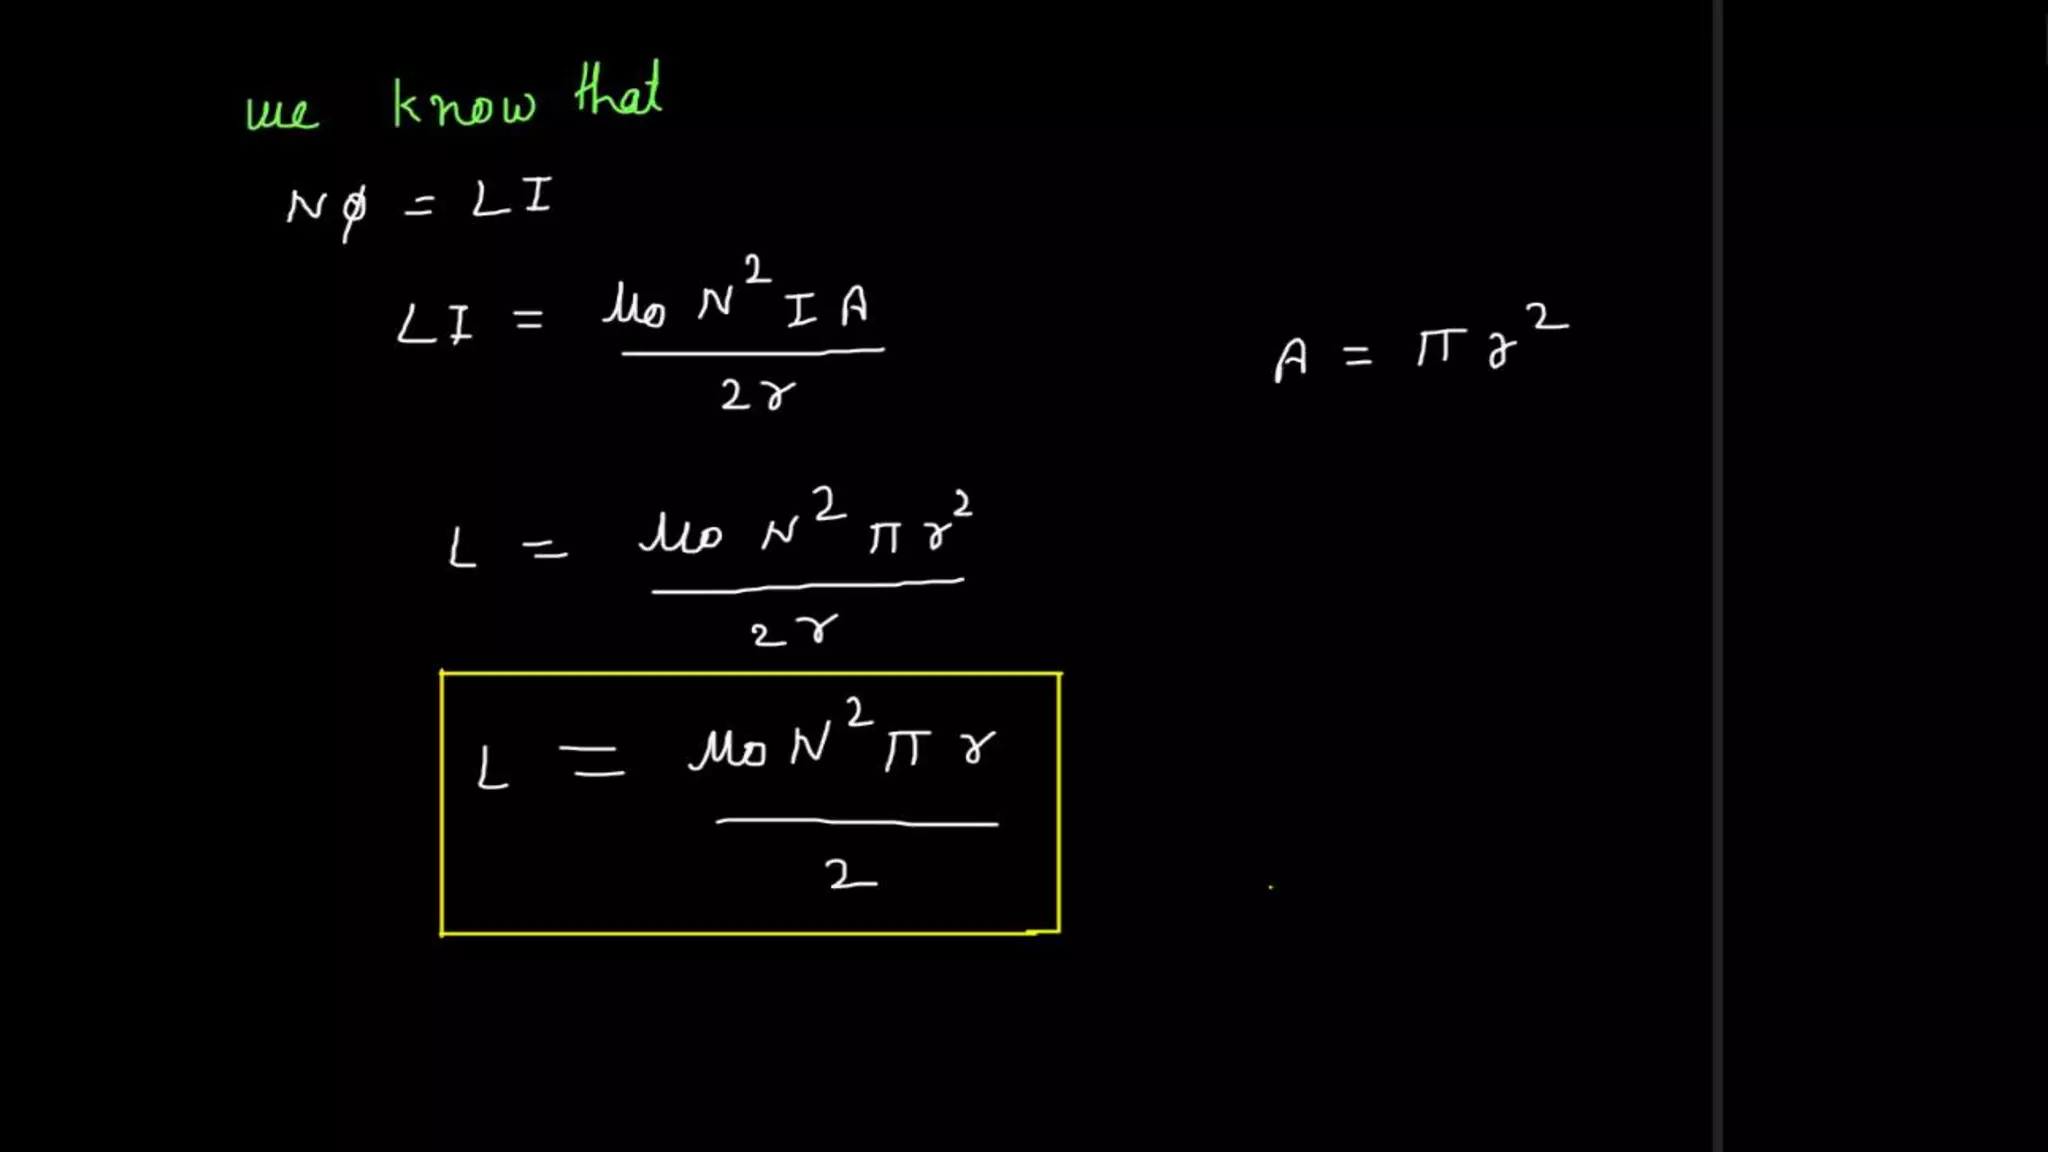 we know that
Nφ = LI
LI = μ₀ N² I A / 2r
A = π r²
L = μ₀ N² π r² / 2r
L = μ₀ N² π r / 2